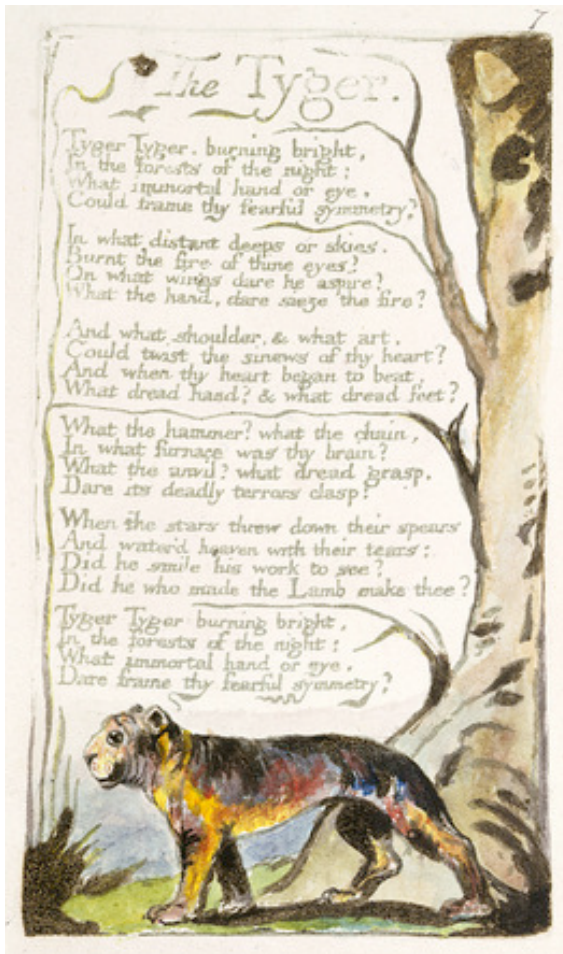 7
The Tyger.
Tyger Tyger. burning bright,
In the forests of the night:
What immortal hand or eye.
Could frame thy fearful symmetry?
In what distant deeps or skies.
Burnt the fire of thine eyes?
On what wings dare he aspire?
What the hand, dare sieze the fire?
And what shoulder, & what art,
Could twist the sinews of thy heart?
And when thy heart began to beat,
What dread hand? & what dread feet?
What the hammer? what the chain,
In what furnace was thy brain?
What the anvil? what dread grasp,
Dare its deadly terrors clasp?
When the stars threw down their spears
And water'd heaven with their tears:
Did he smile his work to see?
Did he who made the Lamb make thee?
Tyger Tyger burning bright,
In the forests of the night:
What immortal hand or eye,
Dare frame thy fearful symmetry?